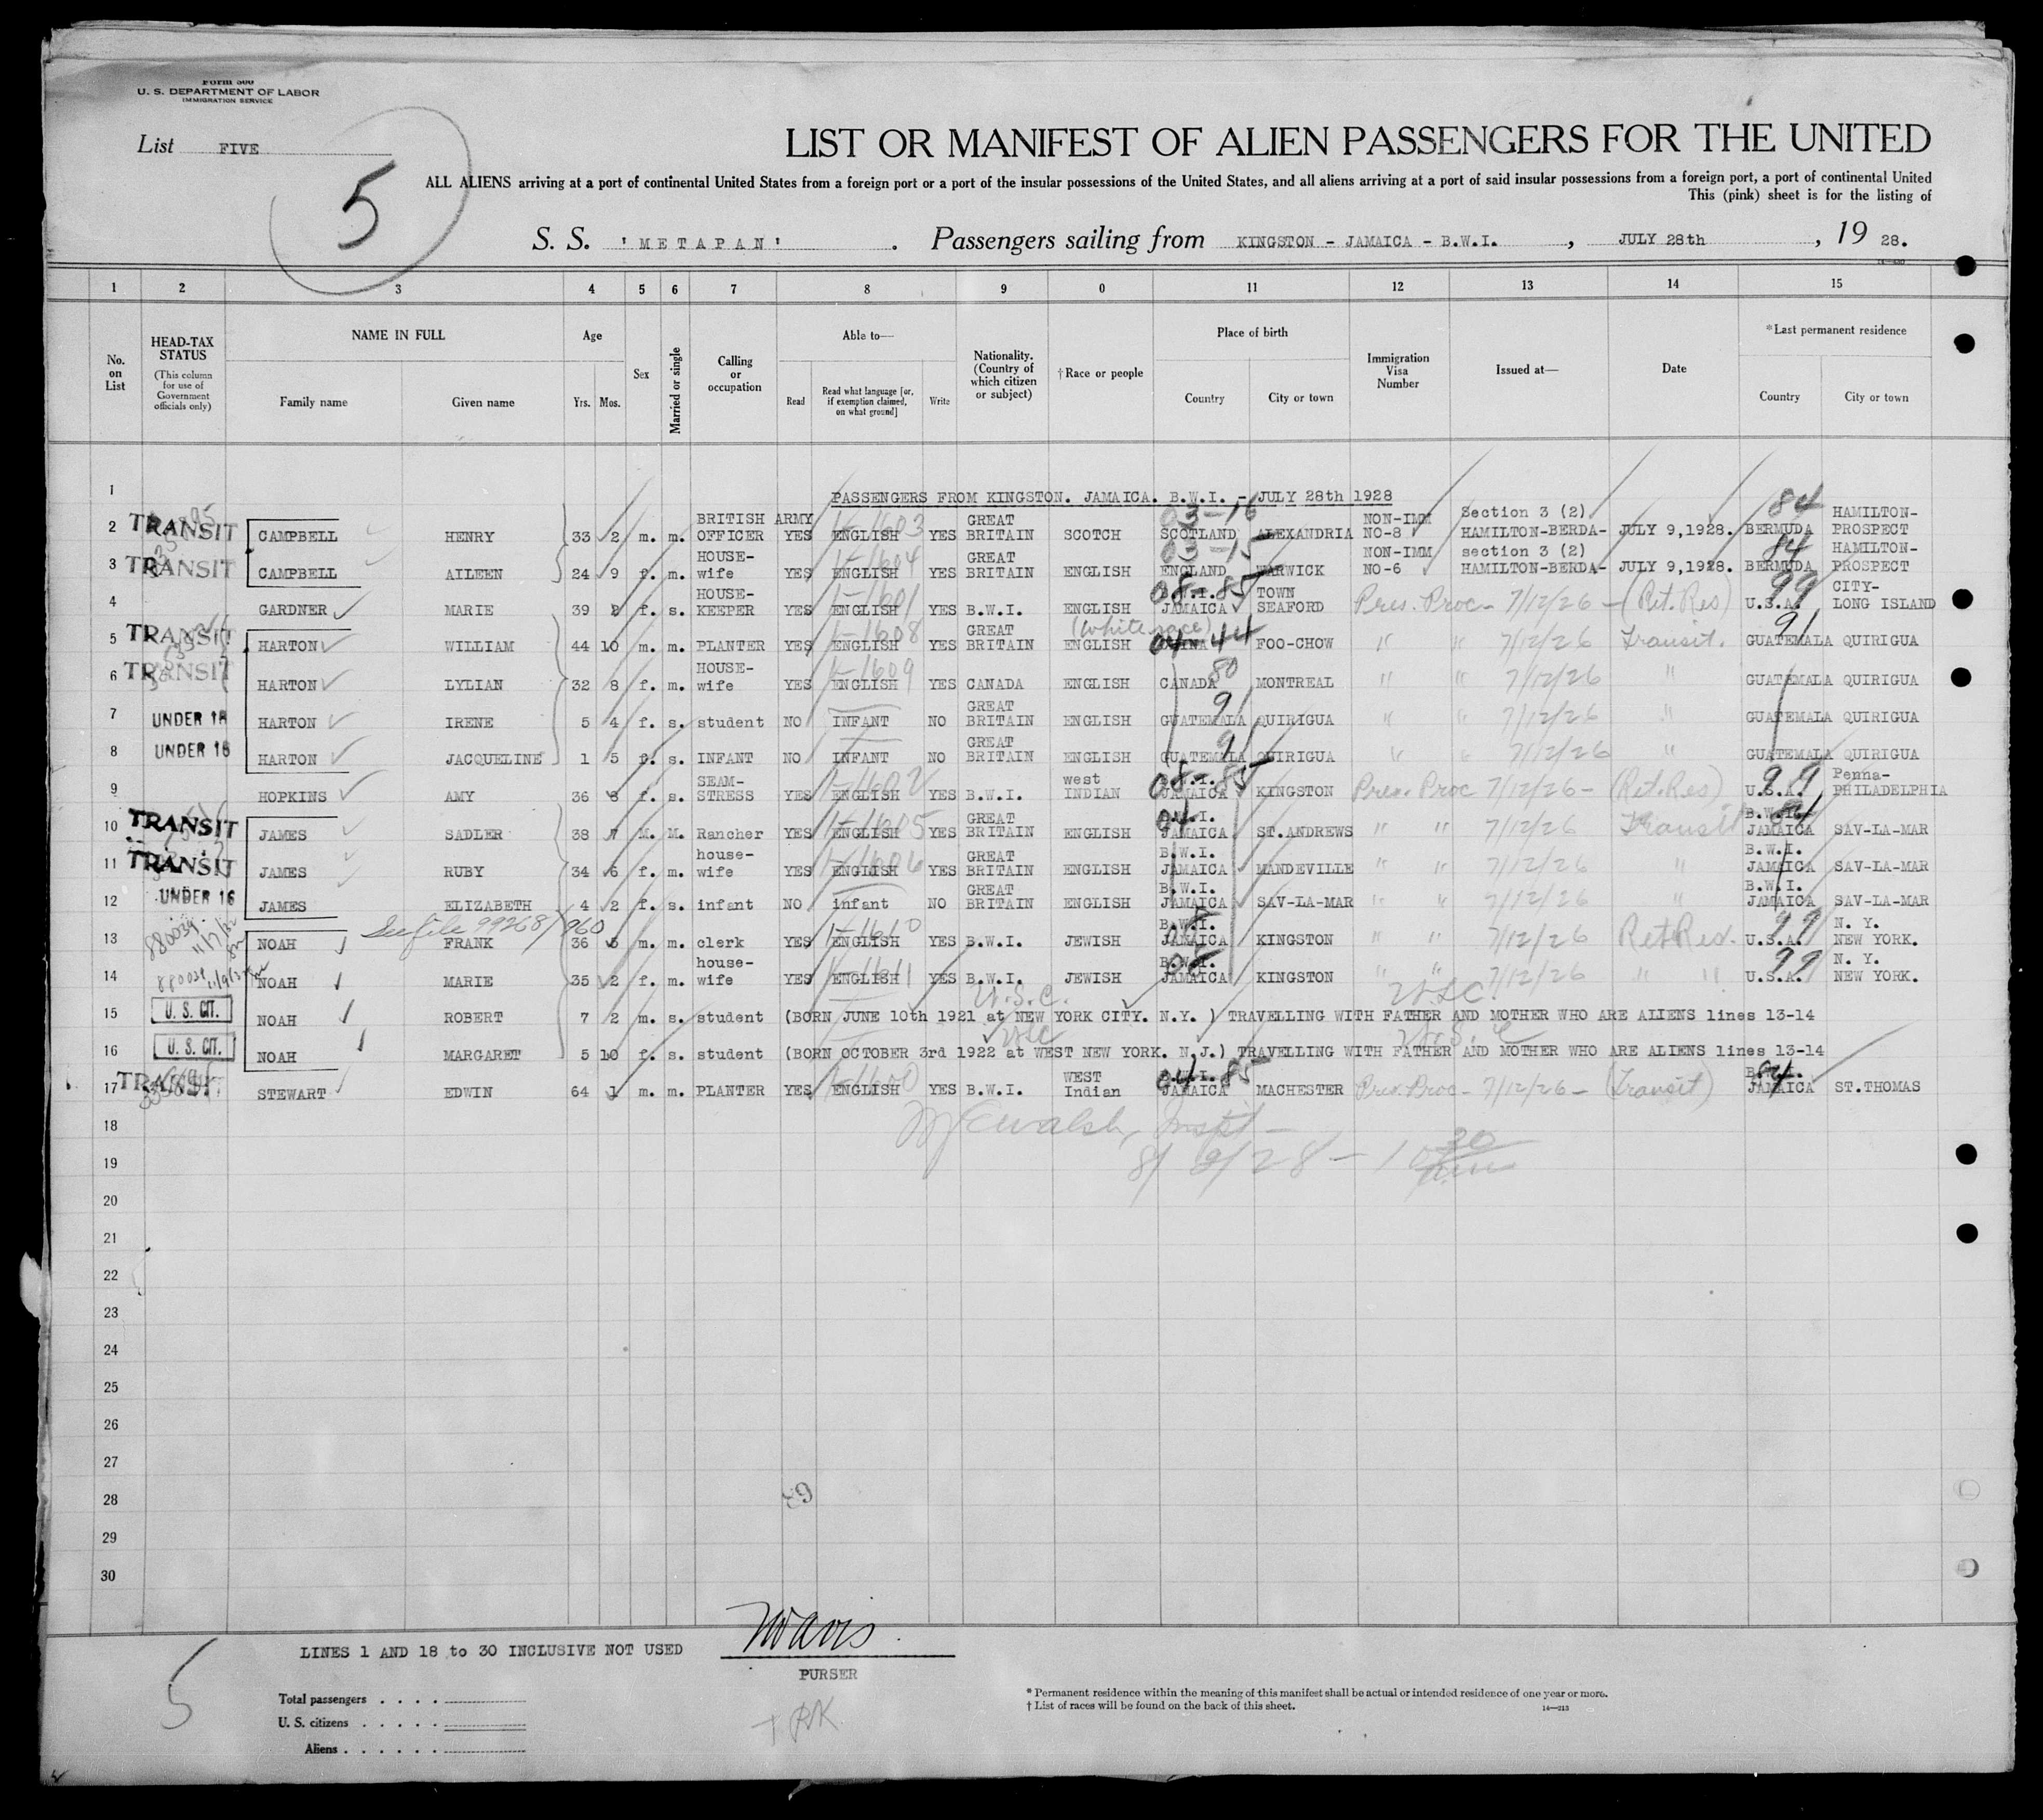 Form 500
U. S. DEPARTMENT OF LABOR
IMMIGRATION SERVICE
List FIVE
5
LIST OR MANIFEST OF ALIEN PASSENGERS FOR THE UNITED
ALL ALIENS arriving at a port of continental United States from a foreign port or a port of the insular possessions of the United States, and all aliens arriving at a port of said insular possessions from a foreign port, a port of continental United
This (pink) sheet is for the listing of
S. S. 'METAPAN' . Passengers sailing from KINGSTON - JAMAICA - B.W.I. , JULY 28th , 19 28.
1 2 3 4 5 6 7 8 9 0 11 12 13 14 15
No. on List
HEAD-TAX STATUS (This column for use of Government officials only)
NAME IN FULL Family name Given name
Age Yrs. Mos.
Sex
Married or single
Calling or occupation
Able to— Read Read what language [or, if exemption claimed, on what ground] Write
Nationality. (Country of which citizen or subject)
†Race or people
Place of birth Country City or town
Immigration Visa Number
Issued at—
Date
*Last permanent residence Country City or town
1 PASSENGERS FROM KINGSTON. JAMAICA. B.W.I. - JULY 28th 1928
2 TRANSIT CAMPBELL HENRY 33 2 m. m. BRITISH ARMY OFFICER YES ENGLISH 1-1603 YES GREAT BRITAIN SCOTCH 03-16 SCOTLAND ALEXANDRIA NON-IMM NO-8 Section 3 (2) HAMILTON-BERDA- JULY 9,1928. 84 BERMUDA HAMILTON- PROSPECT
3 TRANSIT CAMPBELL AILEEN 24 9 f. m. HOUSE- wife YES ENGLISH 1-1604 YES GREAT BRITAIN ENGLISH 03-15 ENGLAND WARWICK NON-IMM NO-6 section 3 (2) HAMILTON-BERDA- JULY 9,1928. 84 BERMUDA HAMILTON- PROSPECT
4 GARDNER MARIE 39 2 f. s. HOUSE- KEEPER YES ENGLISH 1-1601 YES B.W.I. ENGLISH 08-85 B.W.I. JAMAICA TOWN SEAFORD Pres. Proc- 7/12/26 - (Ret. Res) 99 U.S.A. CITY- LONG ISLAND
5 TRANSIT HARTON WILLIAM 44 10 m. m. PLANTER YES ENGLISH 1-1608 YES GREAT BRITAIN (White race) ENGLISH 04 44 CHINA FOO-CHOW " " 7/12/26 Transit. 91 GUATEMALA QUIRIGUA
6 TRANSIT HARTON LYLIAN 32 8 f. m. HOUSE- wife YES ENGLISH 1-1609 YES CANADA ENGLISH 80 CANADA MONTREAL " " 7/12/26 " GUATEMALA QUIRIGUA
7 UNDER 16 HARTON IRENE 5 4 f. s. student NO INFANT NO GREAT BRITAIN ENGLISH 91 GUATEMALA QUIRIGUA " " 7/12/26 " GUATEMALA QUIRIGUA
8 UNDER 16 HARTON JACQUELINE 1 5 f. s. INFANT NO INFANT NO GREAT BRITAIN ENGLISH 91 GUATEMALA QUIRIGUA " " 7/12/26 " GUATEMALA QUIRIGUA
9 HOPKINS AMY 36 8 f. s. SEAM- STRESS YES ENGLISH 1-1602 YES B.W.I. west INDIAN 08-85 B.W.I. JAMAICA KINGSTON Pres. Proc 7/12/26 - (Ret. Res) 99 U.S.A. Penna- PHILADELPHIA
10 TRANSIT JAMES SADLER 38 7 M. M. Rancher YES ENGLISH 1-1605 YES GREAT BRITAIN ENGLISH 04 B.W.I. JAMAICA ST.ANDREWS " " 7/12/26 Transit 84 B.W.I. JAMAICA SAV-LA-MAR
11 TRANSIT JAMES RUBY 34 6 f. m. house- wife YES ENGLISH 1-1606 YES GREAT BRITAIN ENGLISH B.W.I. JAMAICA MANDEVILLE " " 7/12/26 " B.W.I. JAMAICA SAV-LA-MAR
12 UNDER 16 JAMES ELIZABETH 4 2 f. s. infant NO infant NO GREAT BRITAIN ENGLISH B.W.I. JAMAICA SAV-LA-MAR " " 7/12/26 " B.W.I. JAMAICA SAV-LA-MAR
See file 99268/960
13 880039 NOAH FRANK 36 5 m. m. clerk YES ENGLISH 1-1610 YES B.W.I. JEWISH 08 B.W.I. JAMAICA KINGSTON " " 7/12/26 Ret Res. 99 U.S.A. N. Y. NEW YORK.
14 NOAH MARIE 35 2 f. m. house- wife YES ENGLISH 1-1611 YES B.W.I. JEWISH 08 B.W.I. JAMAICA KINGSTON " " 7/12/26 " " 99 U.S.A. N. Y. NEW YORK.
U.S.C. U.S.C.
15 U. S. CIT. NOAH ROBERT 7 2 m. s. student (BORN JUNE 10th 1921 at NEW YORK CITY. N.Y. ) TRAVELLING WITH FATHER AND MOTHER WHO ARE ALIENS lines 13-14
USC U.S.C
16 U. S. CIT. NOAH MARGARET 5 10 f. s. student (BORN OCTOBER 3rd 1922 at WEST NEW YORK. N.J.) TRAVELLING WITH FATHER AND MOTHER WHO ARE ALIENS lines 13-14
17 TRANSIT STEWART EDWIN 64 1 m. m. PLANTER YES ENGLISH 1-1600 YES B.W.I. WEST Indian 04 85 B.W.I. JAMAICA MACHESTER Pres. Proc - 7/12/26 - (Transit) 84 B.W.I. JAMAICA ST.THOMAS
18
19 8/ /28 - 10 30
20
21
22
23
24
25
26
27
28
29
30
LINES 1 AND 18 to 30 INCLUSIVE NOT USED
PURSER
5
Total passengers . . . .
U. S. citizens . . . . .
Aliens . . . . . .
* Permanent residence within the meaning of this manifest shall be actual or intended residence of one year or more.
† List of races will be found on the back of this sheet.
14—213